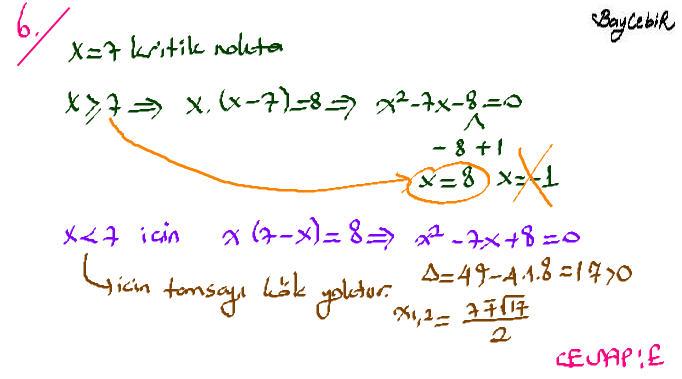 6.
BayCebiR
x=7 kritik nokta
x≥7 ⇒ x.(x-7)=8 ⇒ x²-7x-8=0
-8 +1
x=8 x=-1
x<7 icin x(7-x)=8 ⇒ x²-7x+8=0
icin tamsayı kök yoktur. Δ=49-4.1.8=17>0
x₁,₂ = (7∓√17)/2
CEVAP:E